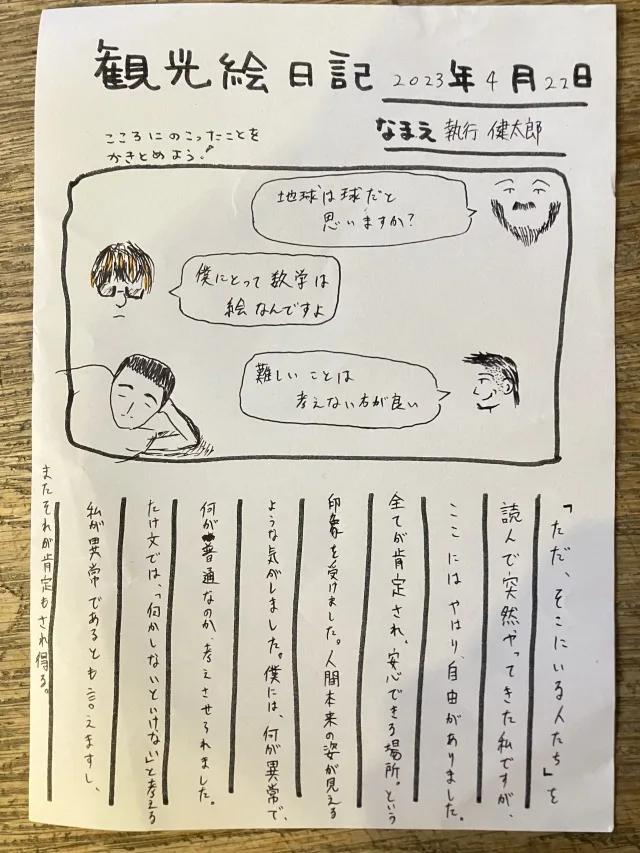 観光絵日記 2023年4月22日
なまえ 執行 健太郎
こころにのこったことを
かきとめよう!
地球は球だと
思いますか?
僕にとって数学は
絵なんですよ
難しいことは
考えない方が良い
「ただ、そこにいる人たち」を
読んで突然やってきた私ですが、
ここにはやはり、自由がありました。
全てが肯定され、安心できる場所。という
印象を受けました。人間本来の姿が見える
ような気がしました。僕には、何が異常で、
何が普通なのか、考えさせられました。
たけ文では、「何かしないといけない」と考える
私が異常であるとも言えますし、
またそれが肯定もされ得る。